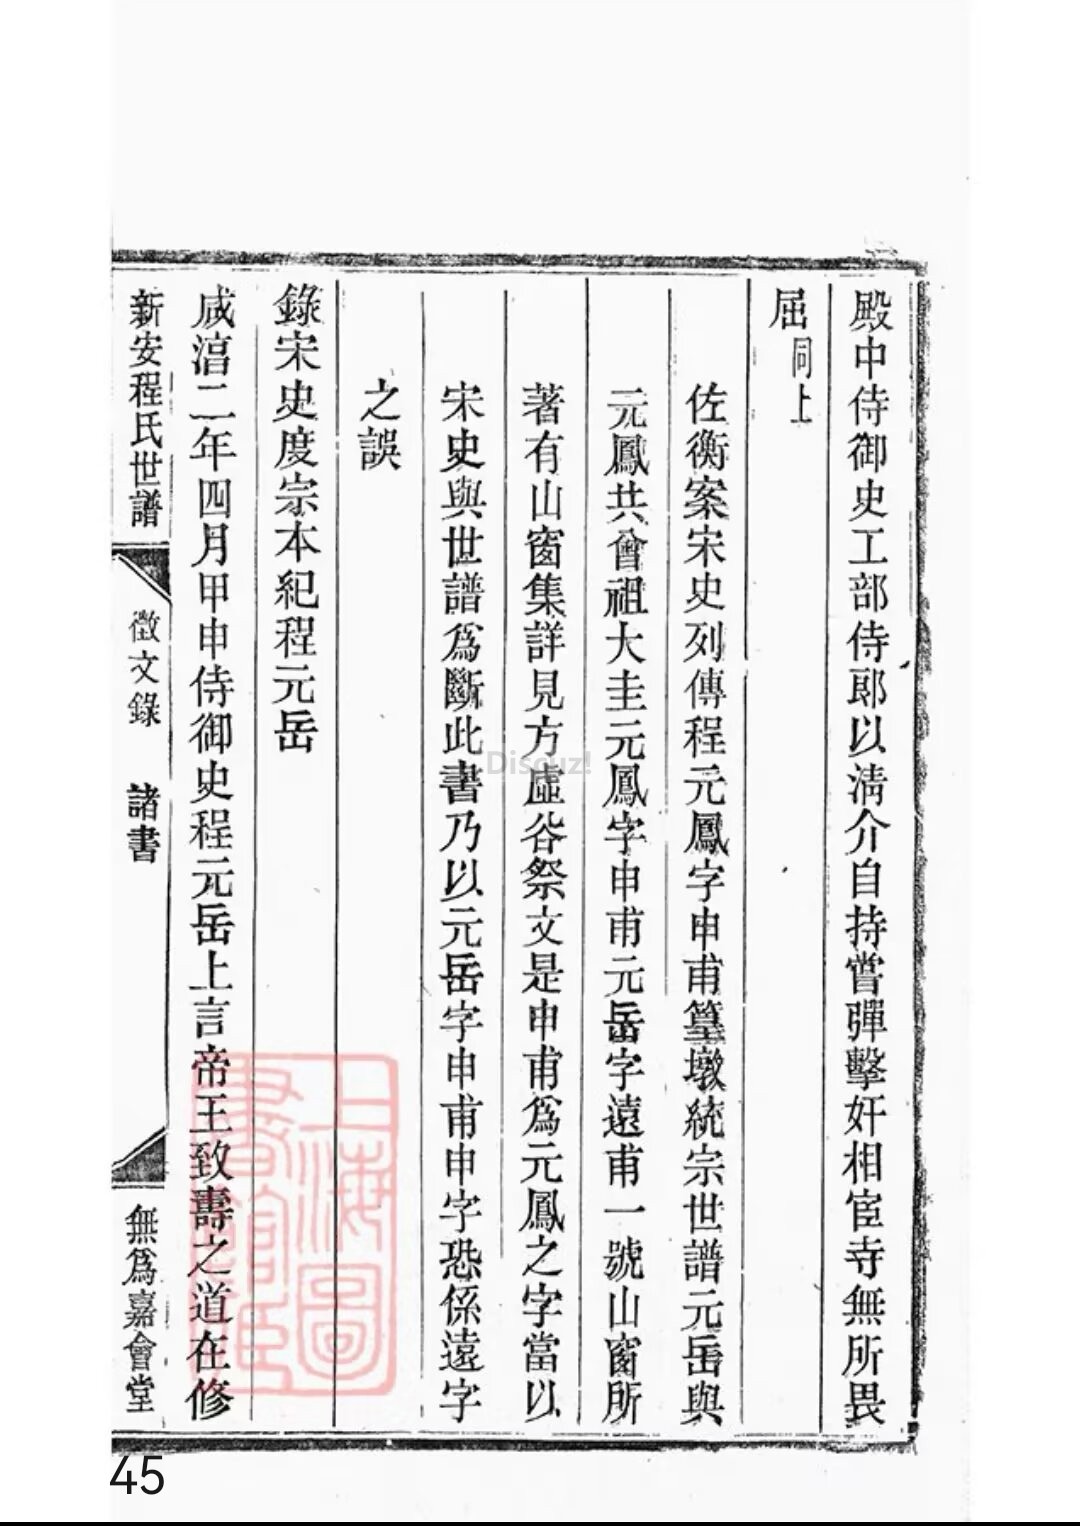 殿中侍御史工部侍郎以淸介自持嘗彈擊奸相宦寺無所畏
屈同上
佐衡案宋史列傳程元鳳字申甫篁墩統宗世譜元岳與
元鳳共曾祖大圭元鳳字申甫元岳字遠甫一號山窗所
著有山窗集詳見方虛谷祭文是申甫爲元鳳之字當以
宋史與世譜爲斷此書乃以元岳字申甫申字恐係遠字
之誤
錄宋史度宗本紀程元岳
咸淳二年四月甲申侍御史程元岳上言帝王致壽之道在修
新安程氏世譜
徵文錄
諸書
無爲嘉會堂
上海圖書館藏
Discuz!
45